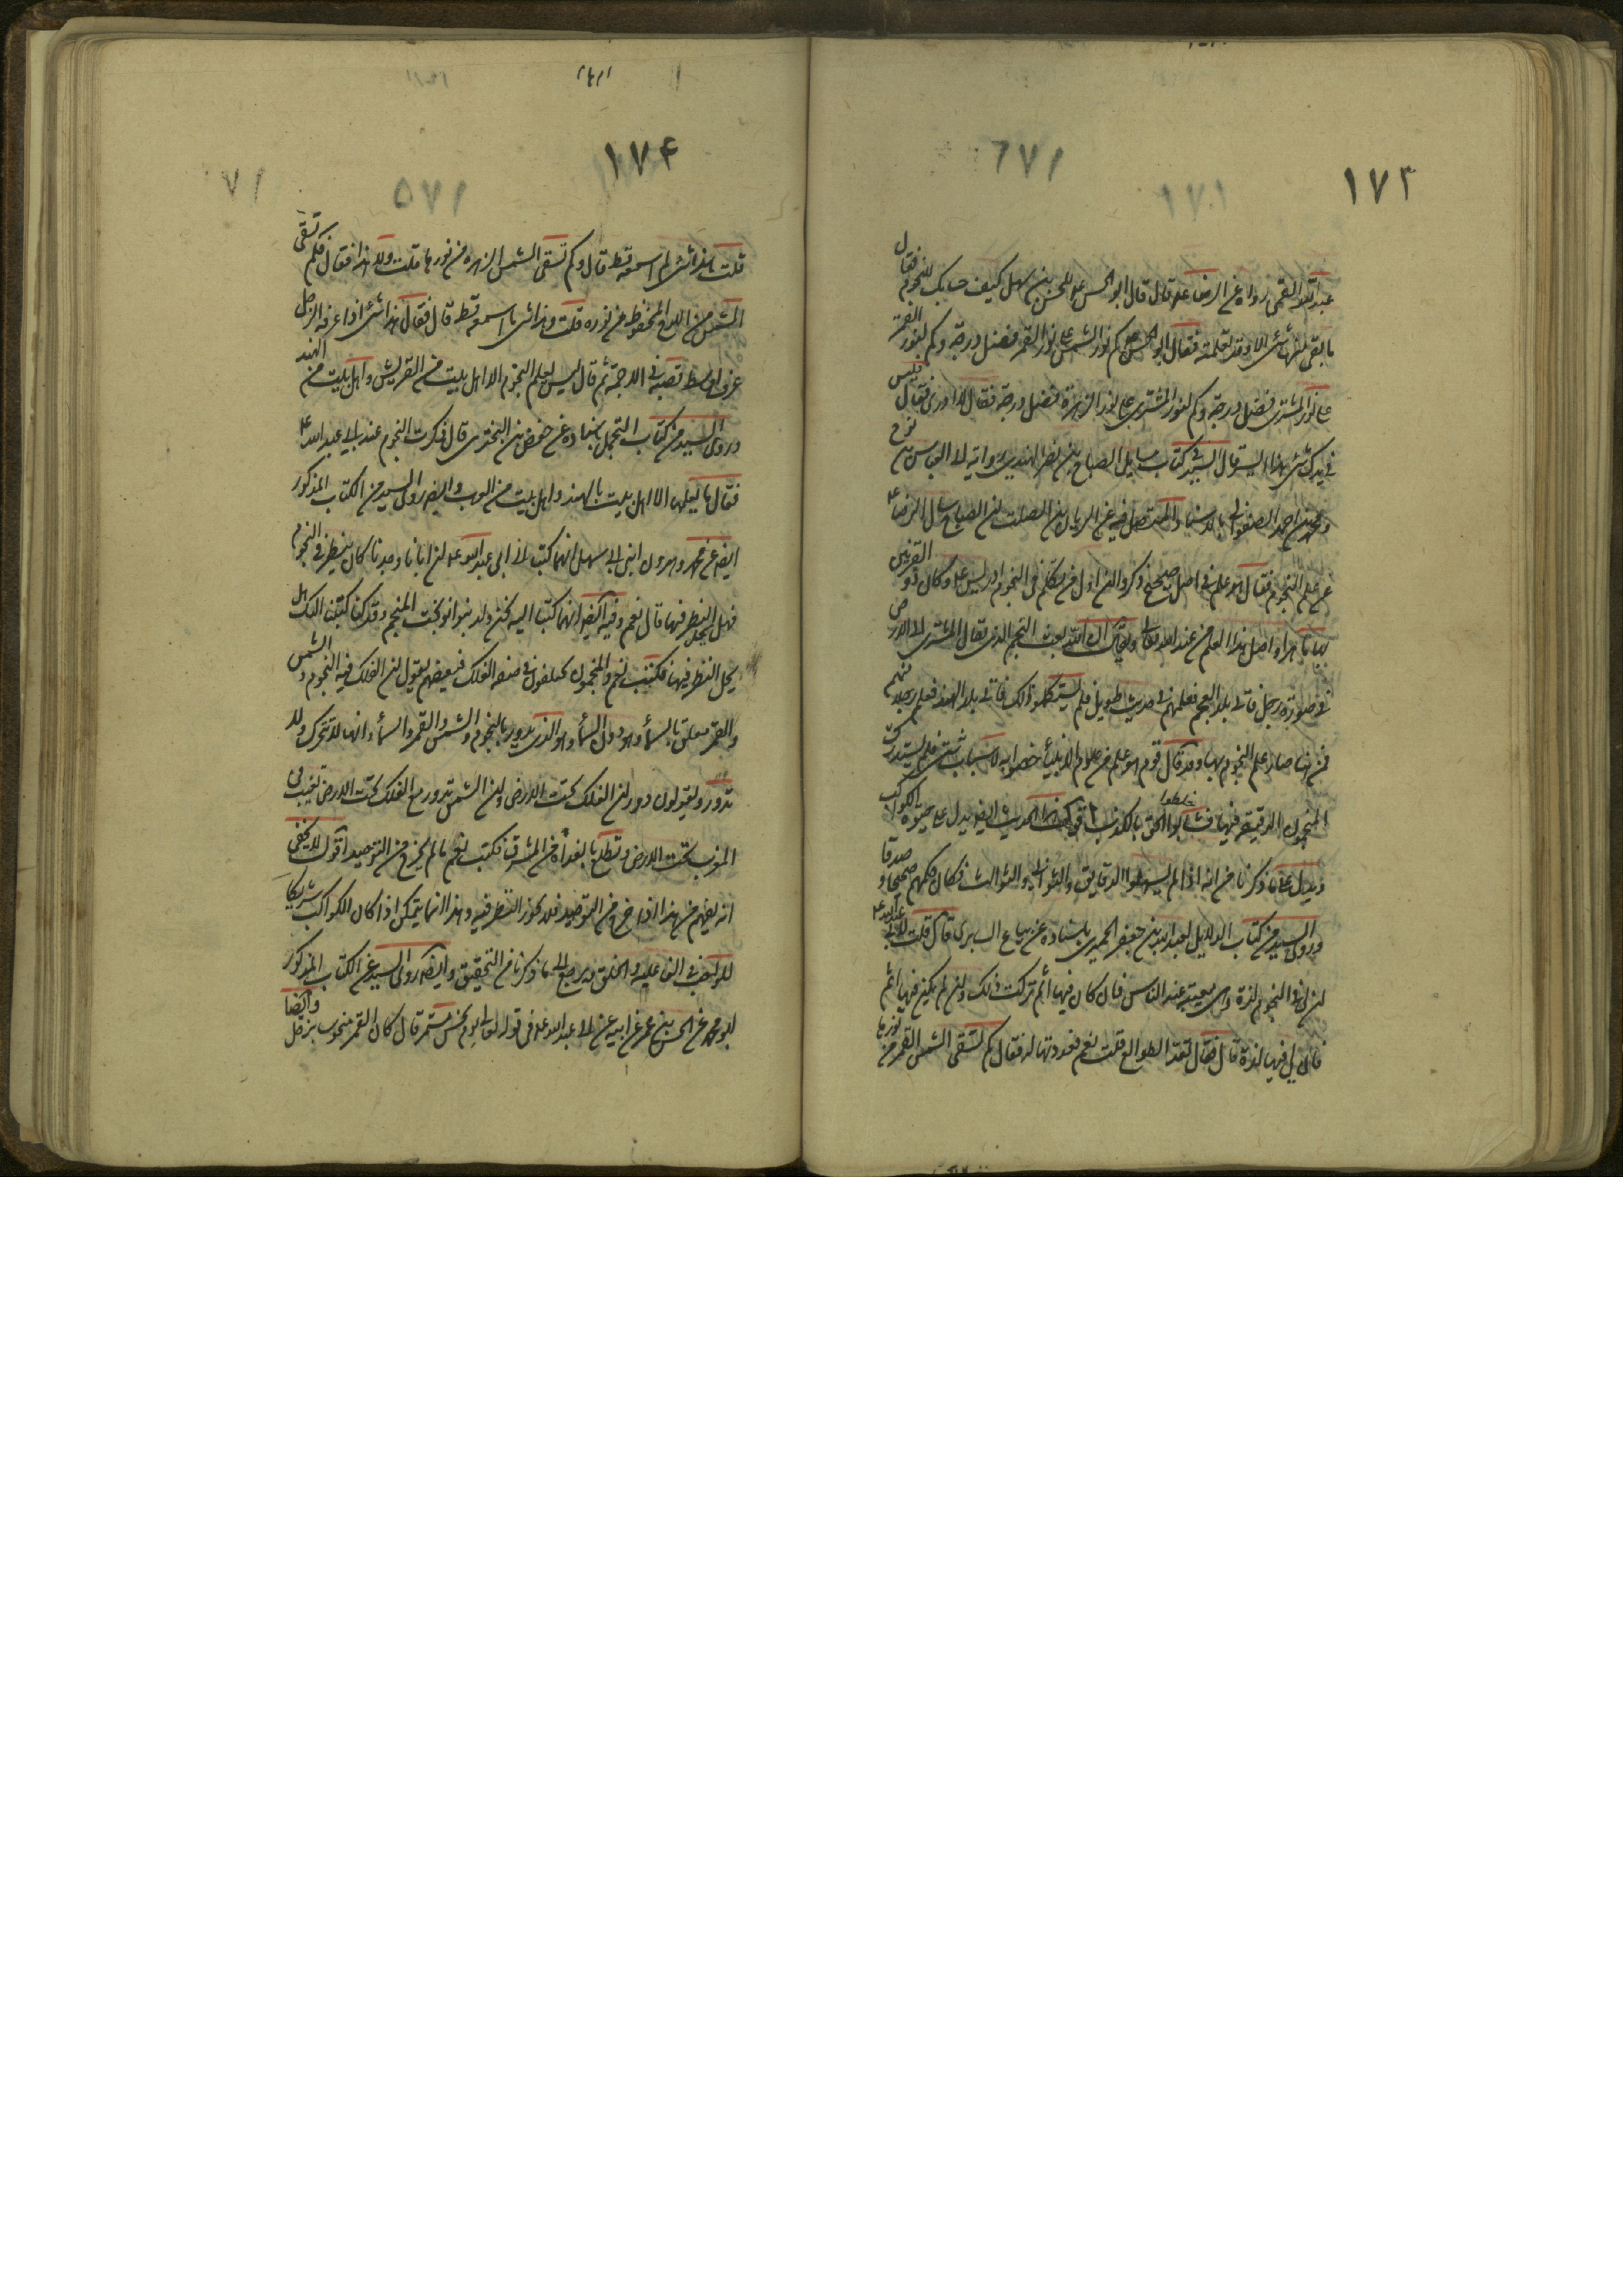 ١٧٣
عبد الله القمي رواه عن الرضا ع قال قال ابو الحسن ع للحسن بن سهل كيف حسابك للنجوم فقال
ما بقي منها شئ الا وقد تعلمته فقال ابو الحسن ع كم لنور الشمس على نور القمر فضل درجة وكم لنور القمر
على نور المشتري فضل درجة وكم لنور المشتري على نور الزهرة فضل درجة فقال لا ادري فقال فليس
في يدك شئ هذا ايسر قال السيد كتاب مسائل الصباح بن نصر الهندي رواية لابي العباس بن نوح
ومحمد بن احمد الصفواني بالاسناد المتصل فيه عن الريان بن الصلت ان الصباح سأل الرضا ع
عن علم النجوم فقال هو علم في اصل صحيح ذكروا ان اول من تكلم في النجوم ادريس ع وكان ذو القرنين
بها ماهرا واصل هذا العلم من عند الله تعالى ويقال ان الله بعث النجم الذي يقال له المشتري الى الارض
في صورة رجل فاتى بلاد العجم فعلمهم في حديث طويل فلم يستكملوا ذلك فاتى بلاد الهند فعلم رجلا منهم
فمن هنا صار علم النجوم بها وقد قال قوم هو علم من علوم الانبياء خصوا به لاسباب شتى فلم يستدرك
المنجمون الدقيقة فيها فشابوا الحق بالكذب اقول هذا الحديث ايضا يدل على حيوة الكواكب
خلطوا
ويدل على ما ذكرنا من انه اذا لم يسهلوا الدقايق والثواني والثوالث فكان حكمهم صحيحا وصدقا
وروى السيد من كتاب الدلايل لعبد الله بن جعفر الحميري باسناده عن بياع السابري قال قلت لابي عبد الله ع
ان لي في النجوم لذة وهي معيبة عند الناس فان كان فيها اثم تركت ذلك وان لم يكن فيها اثم
فان لي فيها لذة قال فقال تعد الطوالع قلت نعم فعددتها له فقال كم تسقي الشمس القمر من نورها
١٧۴
قلت هذا شئ لم اسمعه قط قال وكم تسقي الشمس الزهرة من نورها قلت ولا هذا فقال فكم تسقى
الشمس من اللوح المحفوظ من نوره قلت وهذا شئ ما اسمعه قط قال فقال هذا شئ اذا عرفه الرجل
عرف اوسط قصبة في الاجمة ثم قال ليس يعلم النجوم الا اهل بيت من القريش واهل بيت من الهند
وروى السيد من كتاب التجمل باسناده عن حفص بن البختري قال ذكرت النجوم عند ابي عبد الله ع
فقال ما يعلمها الا اهل بيت بالهند واهل بيت من العرب وايضا روى السيد من الكتاب المذكور
ايضا عن محمد وهرون ابني ابي سهل انهما كتبا الى ابي عبد الله ع ان ابانا وجدنا كان ينظر في النجوم
فهل يحل النظر فيها قال نعم وفيه ايضا انهما كتبا اليه نحن ولد بنو نوبخت المنجم وقد كنا كتبنا اليك هل
يحل النظر فيها فكتبت نعم والمنجمون يختلفون في صفة الفلك فبعضهم يقول ان الفلك فيه النجوم والشمس
والقمر معلق بالسماء وهو دون السماء وهو الذي يدور بالنجوم والشمس والقمر والسماء انها لا تتحرك ولا
تدور ويقولون دوران الفلك تحت الارض وان الشمس تدور مع الفلك تحت الارض تغيب في
المغرب تحت الارض وتطلع بالغداة من المشرق فكتب نعم ما لم يخرج من التوحيد اقول لا يخفى
انه يفهم من هذا اذا خرج من التوحيد فلا يجوز النظر فيه وهذا انما يتمكن اذا كان الكواكب شريكا
للواجب في الفاعليه والخلق فيرجع الى ما ذكرنا من التحقيق وايضا روى السيد عن الكتاب المذكور
ابو محمد عن الحسن بن عمر عن ابيه عن ابي عبد الله ع في قوله تعالى يوم نحس مستمر قال كان القمر منحوسا بزحل وايضا